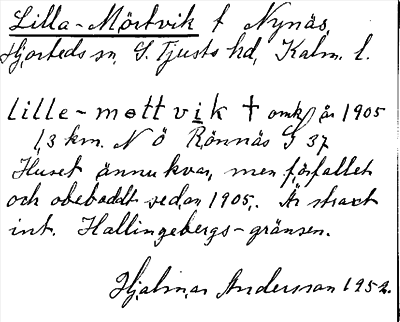 Lilla-Mörtvik t Nynäs
Hjorteds sn, S. Tjusts hd, Kalm. l.
lille-mottvik † omkr år 1905
1,3 km. N Ö Rönnäs S 37
Huset ännu kvar, men förfallet
och obebodt sedan 1905. Är straxt
int. Hallingebergs-gränsen.
Hjalmar Andersson 1952.